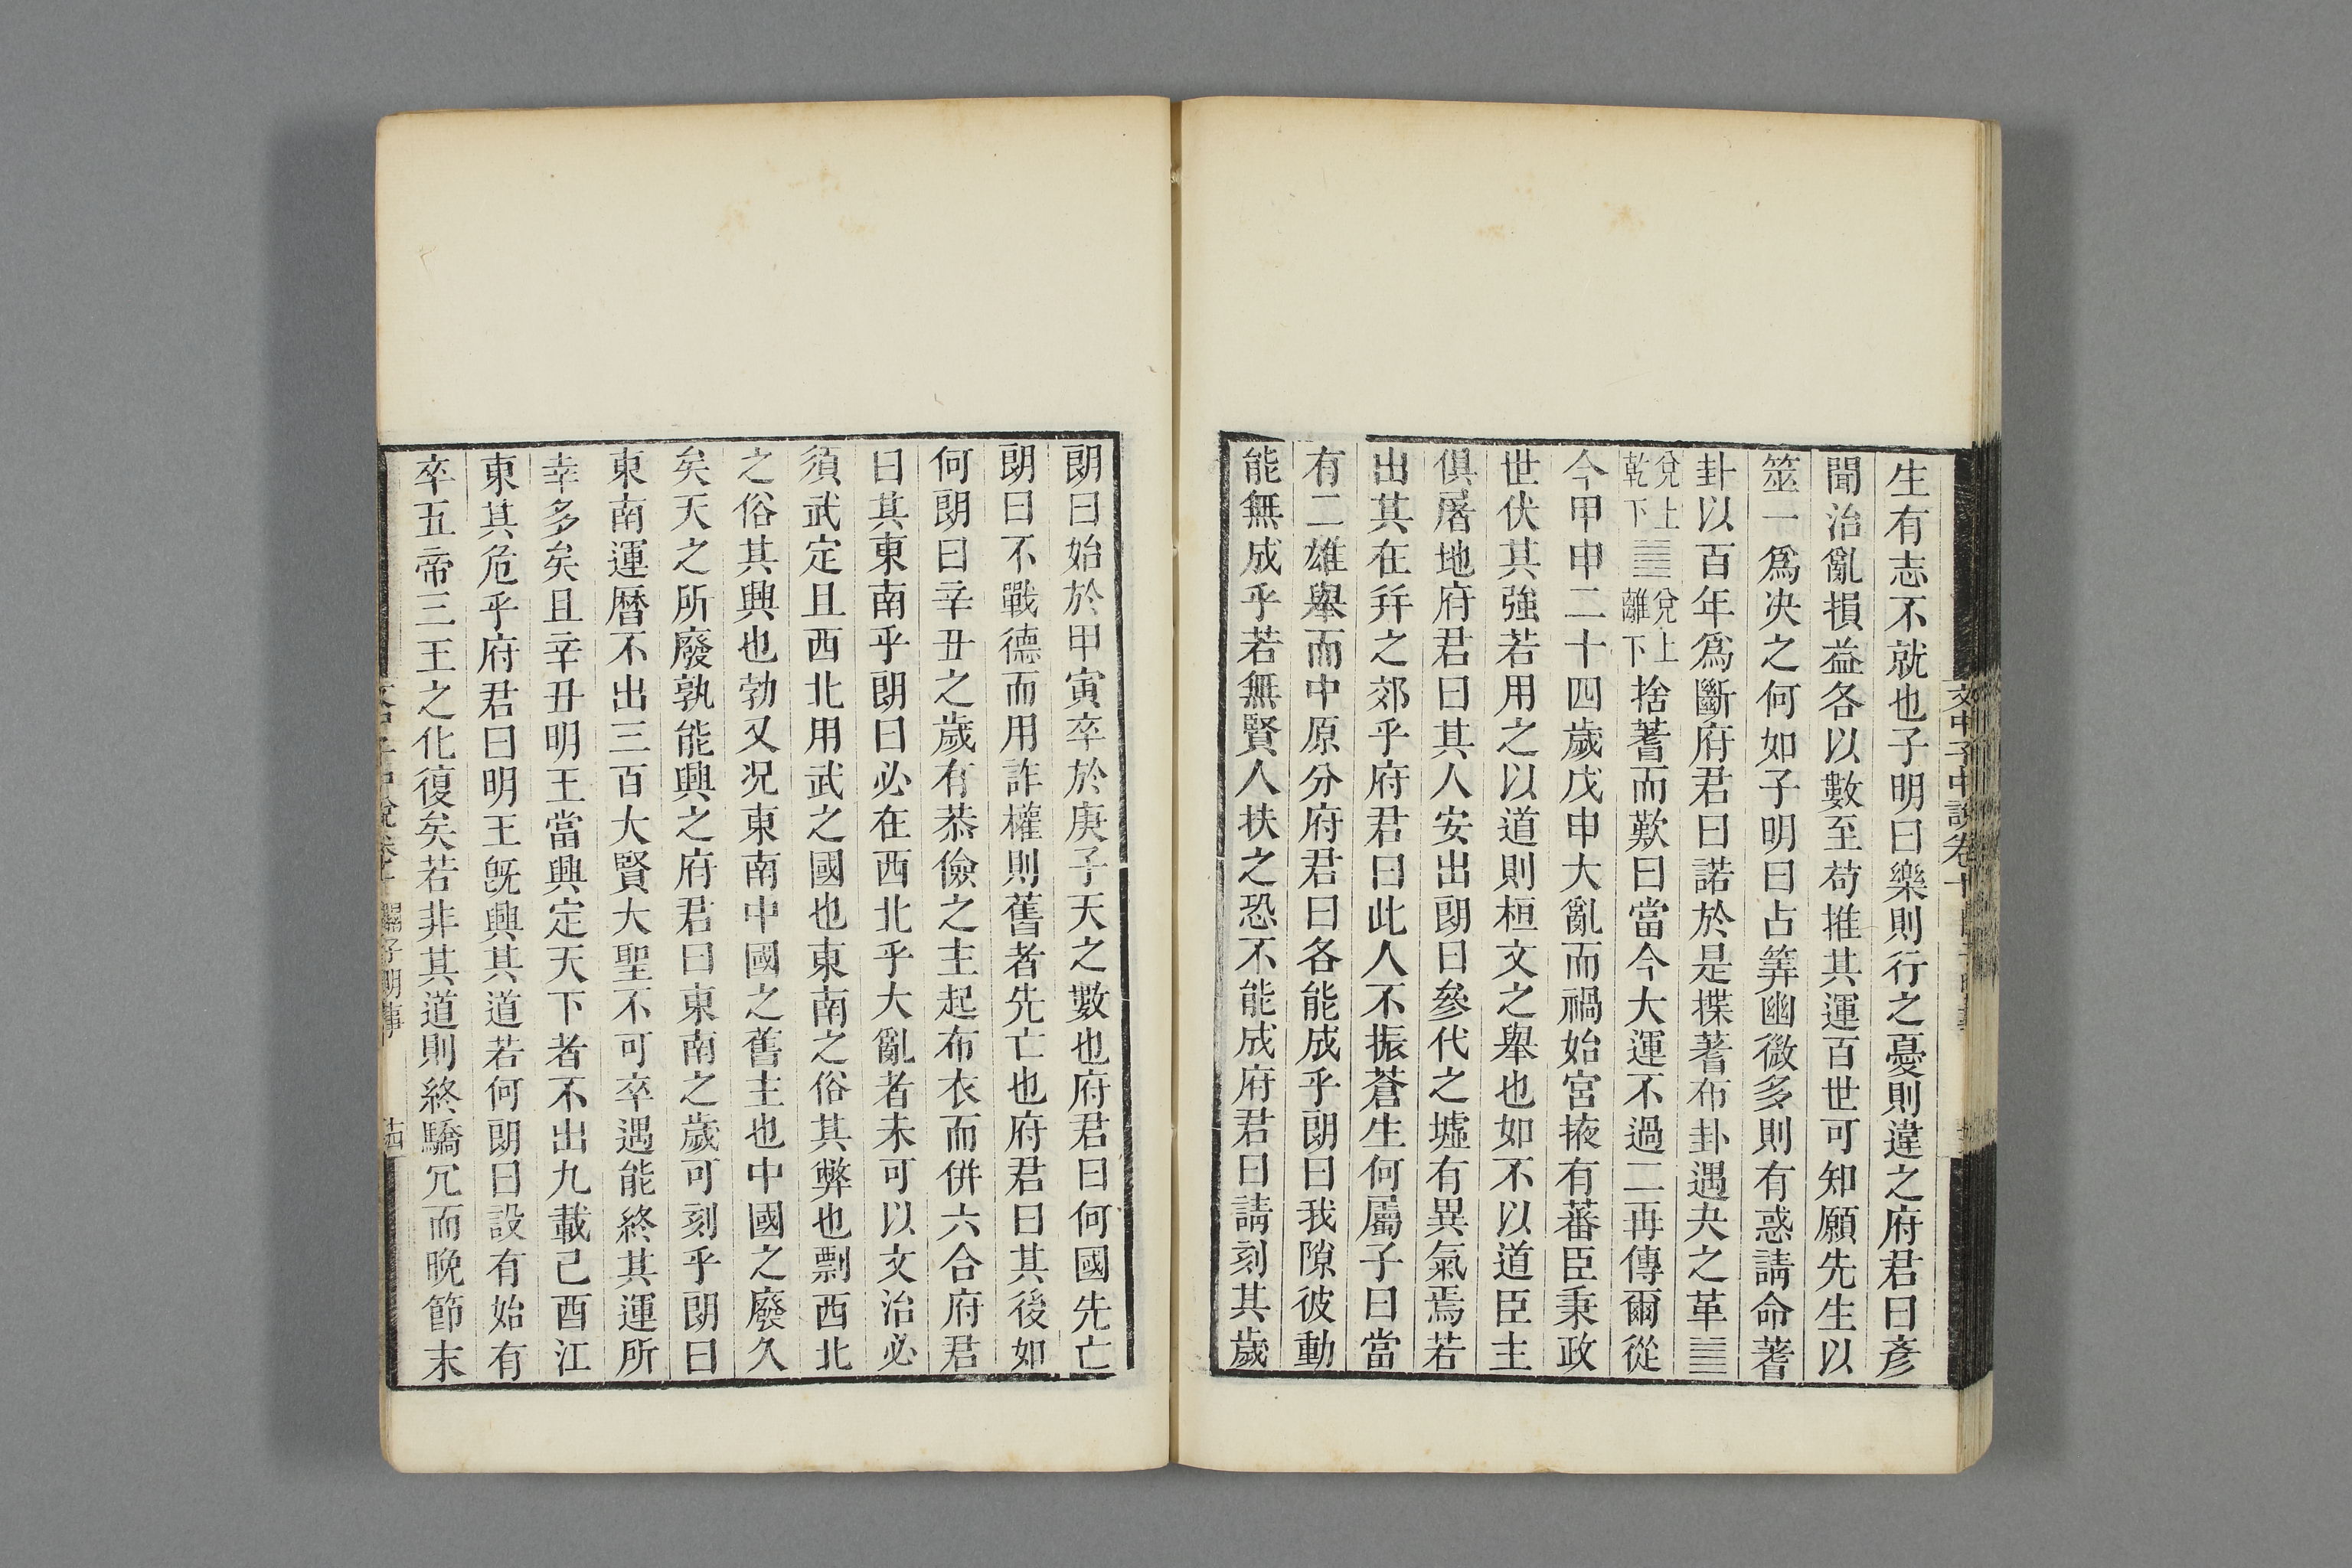 生有志不就也子明曰樂則行之憂則違之府君曰彥
聞治亂損益各以數至苟推其運百世可知願先生以
筮一爲决之何如子明曰占筭幽微多則有惑請命蓍
卦以百年爲斷府君曰諾於是揲蓍布卦遇夬之革䷪
兌上
乾下
䷰
兌上
離下
捨蓍而歎曰當今大運不過二再傳爾從
今甲申二十四歲戊申大亂而禍始宮掖有蕃臣秉政
世伏其強若用之以道則桓文之舉也如不以道臣主
俱屠地府君曰其人安出朗曰參代之墟有異氣焉若
出其在并之郊乎府君曰此人不振蒼生何屬子曰當
有二雄舉而中原分府君曰各能成乎朗曰我隙彼動
能無成乎若無賢人扶之恐不能成府君曰請刻其歲
朗曰始於甲寅卒於庚子天之數也府君曰何國先亡
朗曰不戰德而用詐權則舊者先亡也府君曰其後如
何朗曰辛丑之歲有恭儉之主起布衣而併六合府君
曰其東南乎朗曰必在西北乎大亂者未可以文治必
須武定且西北用武之國也東南之俗其弊也剽西北
之俗其興也勃又况東南中國之舊主也中國之廢久
矣天之所廢孰能興之府君曰東南之歲可刻乎朗曰
東南運曆不出三百大賢大聖不可卒遇能終其運所
幸多矣且辛丑明王當興定天下者不出九載己酉江
東其危乎府君曰明王旣興其道若何朗曰設有始有
卒五帝三王之化復矣若非其道則終驕冗而晚節末
文中子中說卷十
關子明事
廿四